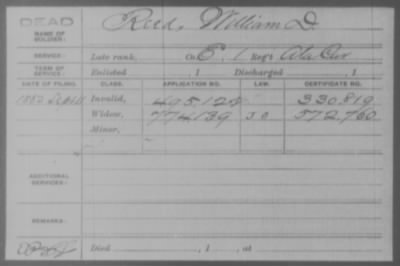 DEAD
NAME OF SOLDIER: Reid, William D.
SERVICE: Late rank, Co. E. 1 Reg't Ala Cav
TERM OF SERVICE: Enlisted , 1 Discharged , 1
DATE OF FILING. CLASS. APPLICATION NO. LAW. CERTIFICATE NO.
1883 Invalid, 495,128 330,819
Widow, 774,139 572,760
Minor,
ADDITIONAL SERVICES:
REMARKS:
Died , 1 , at